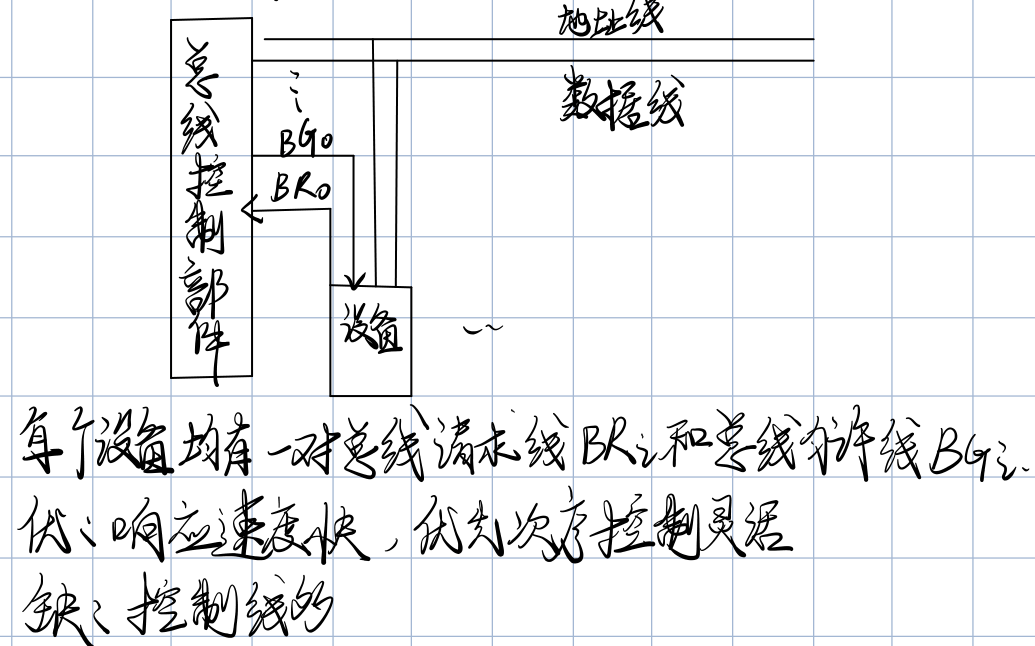 地址线
数据线
总线控制部件
BG0
BR0
设备
每个设备均有一对总线请求线BRi和总线允许线BGi.
优:响应速度快,优先次序控制灵活
缺:控制线多